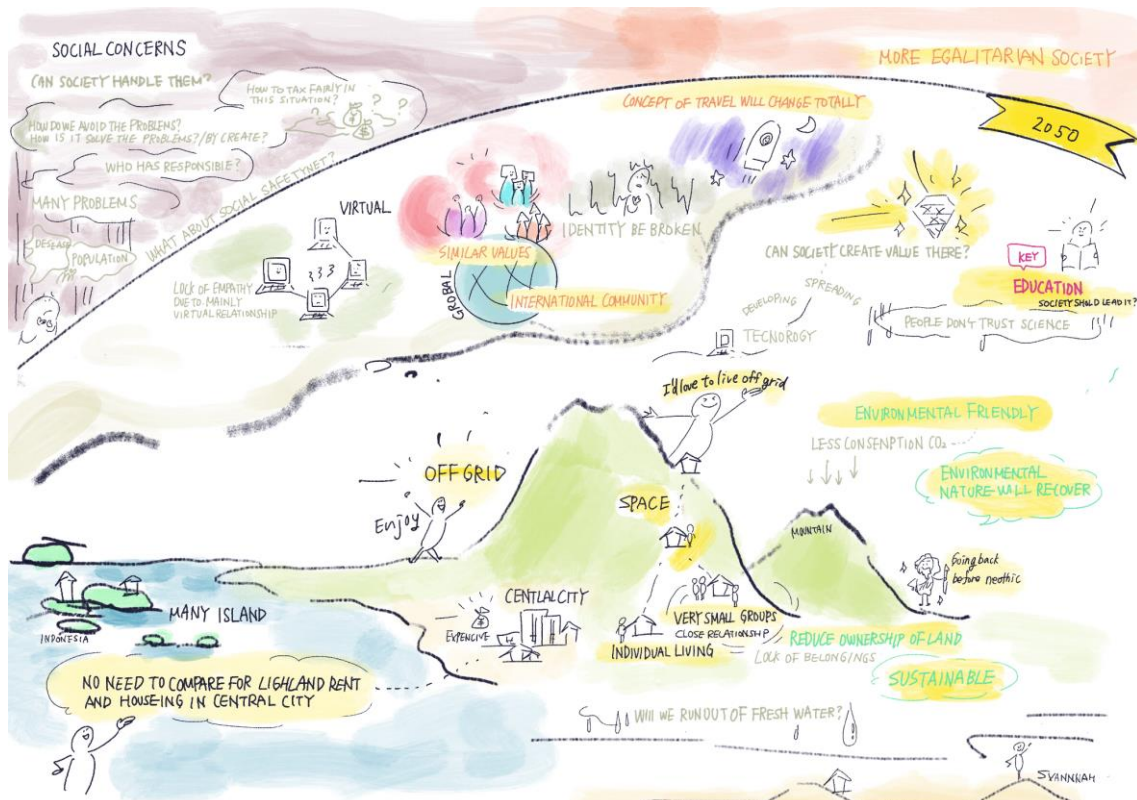 SOCIAL CONCERNS
CAN SOCIETY HANDLE THEM?
HOW TO TAX FAIRLY IN
THIS SITUATION?
HOW DO WE AVOID THE PROBLEMS?
HOW IS IT SOLVE THE PROBLEMS?/BY CREATE?
WHO HAS RESPONSIBLE?
MANY PROBLEMS
POPULATION
WHAT ABOUT SOCIAL SAFETYNET?
MORE EGALITARIAN SOCIETY
2050
CONCEPT OF TRAVEL WILL CHANGE TOTALLY
VIRTUAL
LOCK OF EMPATHY
DUE TO MAINLY
VIRTUAL RELATIONSHIP
SIMILAR VALUES
GROBAL
INTERNATIONAL COMMUNITY
IDENTITY BE BROKEN
CAN SOCIETY CREATE VALUE THERE?
KEY
EDUCATION
SOCIETY SHOLD LEAD IT?
DEVELOPING
SPREADING
TECNOROGY
PEOPLE DON'T TRUST SCIENCE
I'd love to live off grid
ENVIRONMENTAL FRIENDLY
LESS CONSENPTION CO₂
ENVIRONMENTAL
NATURE WALL RECOVER
OFF GRID
Enjoy
SPACE
MOUNTAIN
Going back
before neothic
MANY ISLAND
INDONESIA
CENTLAL CITY
EXPENCIVE
VERY SMALL GROUPS
CLOSE RELATIONSHIP
INDIVIDUAL LIVING
REDUCE OWNERSHIP OF LAND
LOCK OF BELONGINGS
SUSTAINABLE
NO NEED TO COMPARE FOR LIGHLAND RENT
AND HOUSE-ING IN CENTRAL CITY
WILL WE RUNOUT OF FRESH WATER?
SVANNHAH